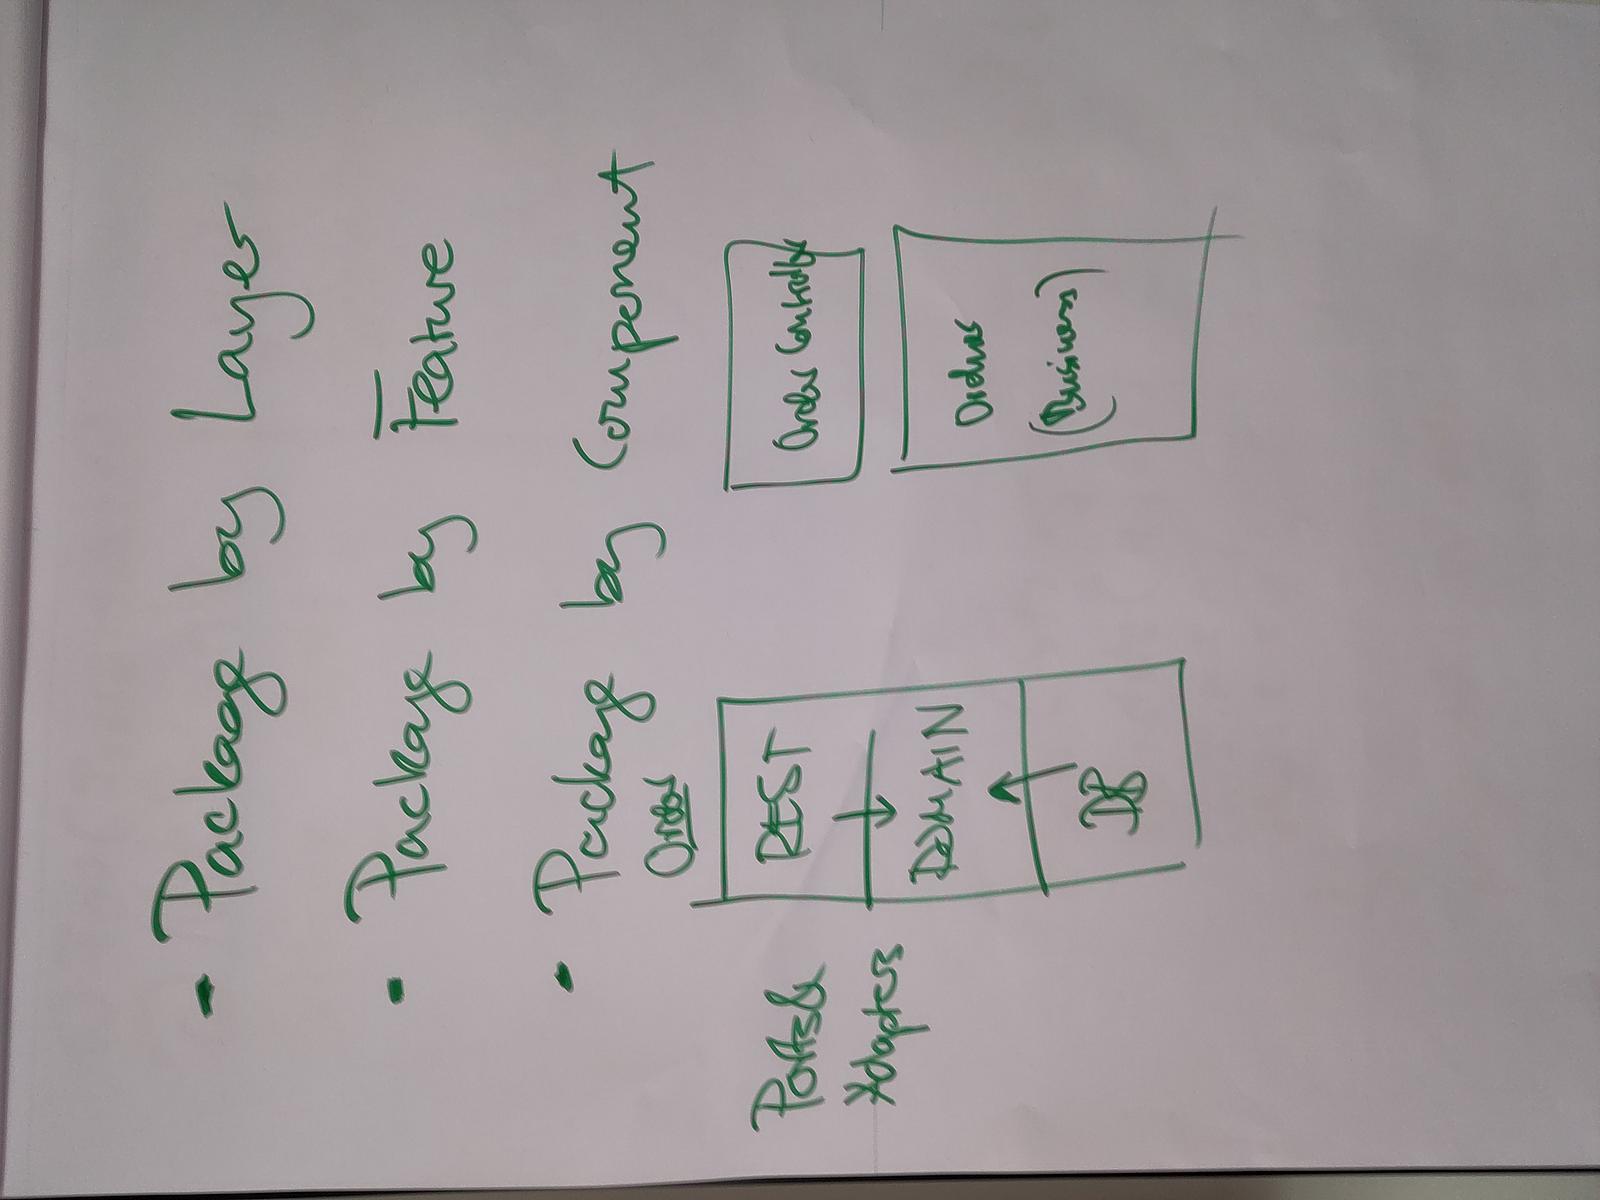 - Package by Layer
- Package by Feature
- Package by Component
Order
Ports &
Adapters
REST
DOMAIN
DB
Order Controller
Orders
(Business)